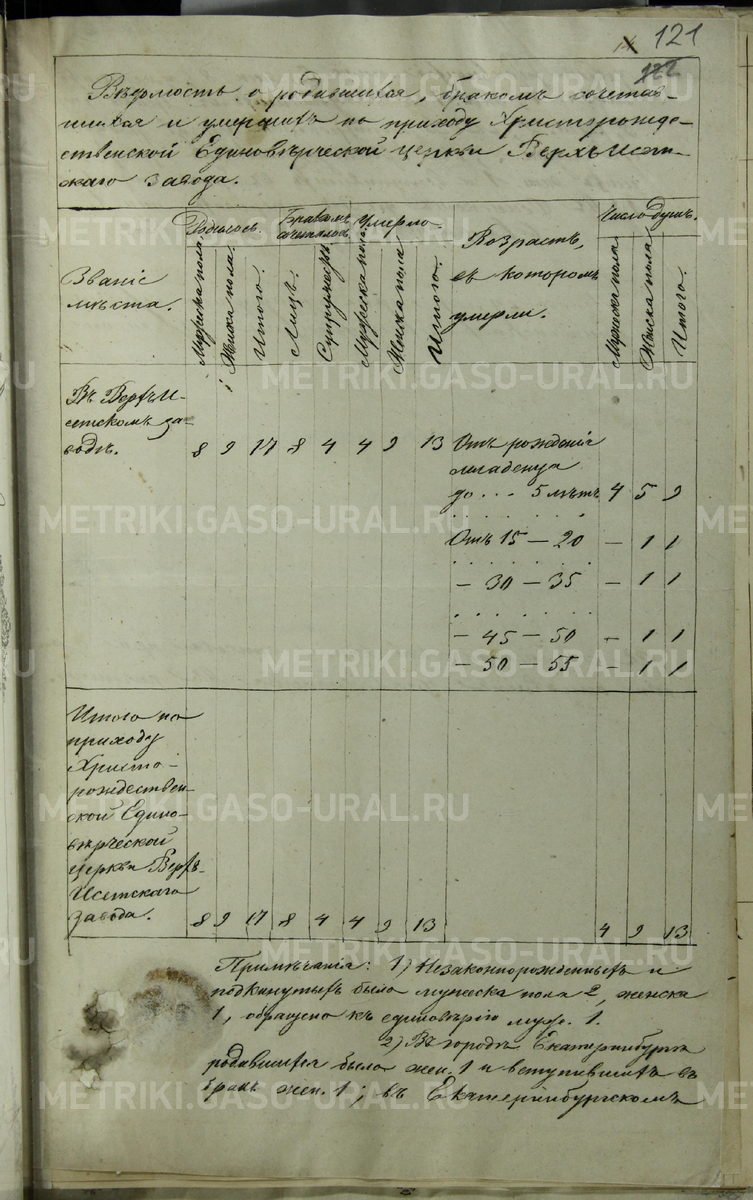 121
122
Вѣдомость о родившихся, бракомъ сочетав-
шихся и умершихъ по приходу Христорожде-
ственской Единовѣрческой церкви Верхъ Исет-
скаго завода.
Званіе мѣста.
Родилось.
Мужеска пола.
Женска пола.
Итого.
Бракомъ сочеталось
Лицъ.
Супружествъ
Умерло.
Мужеска пола
Женска пола
Итого.
Возрастъ,
въ которомъ
умерли.
Число душъ.
Мужеска пола.
Женска пола
Итого.
Въ Верхъ И-
сетскомъ за-
водѣ. 8 9 17 8 4 4 9 13 Отъ рожденія
младенца
до ... 5 лѣтъ 4 5 9
Отъ 15 — 20 — 1 1
— 30 — 35 — 1 1
— 45 — 50 — 1 1
— 50 — 55 — 1 1
Итого по
приходу
Христо-
рождествен-
ской Едино-
вѣрческой
церкви Верхъ-
Исетскаго
завода. 8 9 17 8 4 4 9 13 4 9 13
Примѣчанія: 1) Незаконнорожденныхъ и
подкинутыхъ было мужеска пола 2, женска
1, обращено къ единовѣрію муж. 1.
2) Въ городѣ Екатеринбургѣ
родившихся было жен. 1 и вступившихъ въ
бракъ жен. 1; въ Екатеринбургскомъ
METRIKI.GASO-URAL.RU